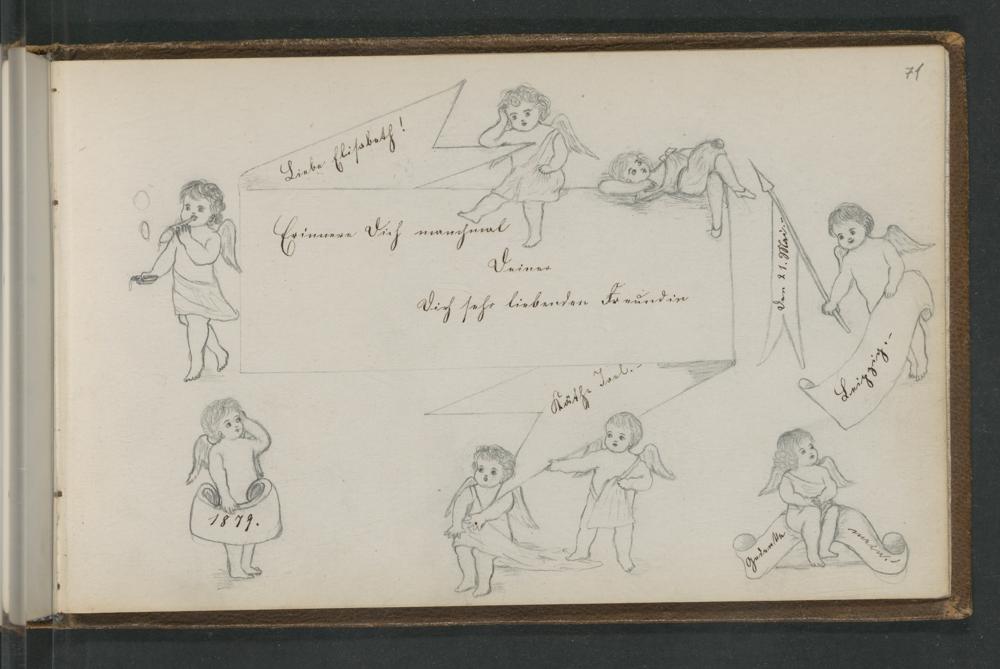 71
Liebe Elisabeth!
Erinnere Dich manchmal
Deiner
Dich sehr liebenden Freundin
Käthe Joel.-
den 21. Mai.-
Leipzig.-
1879.
Gedenke mein.-